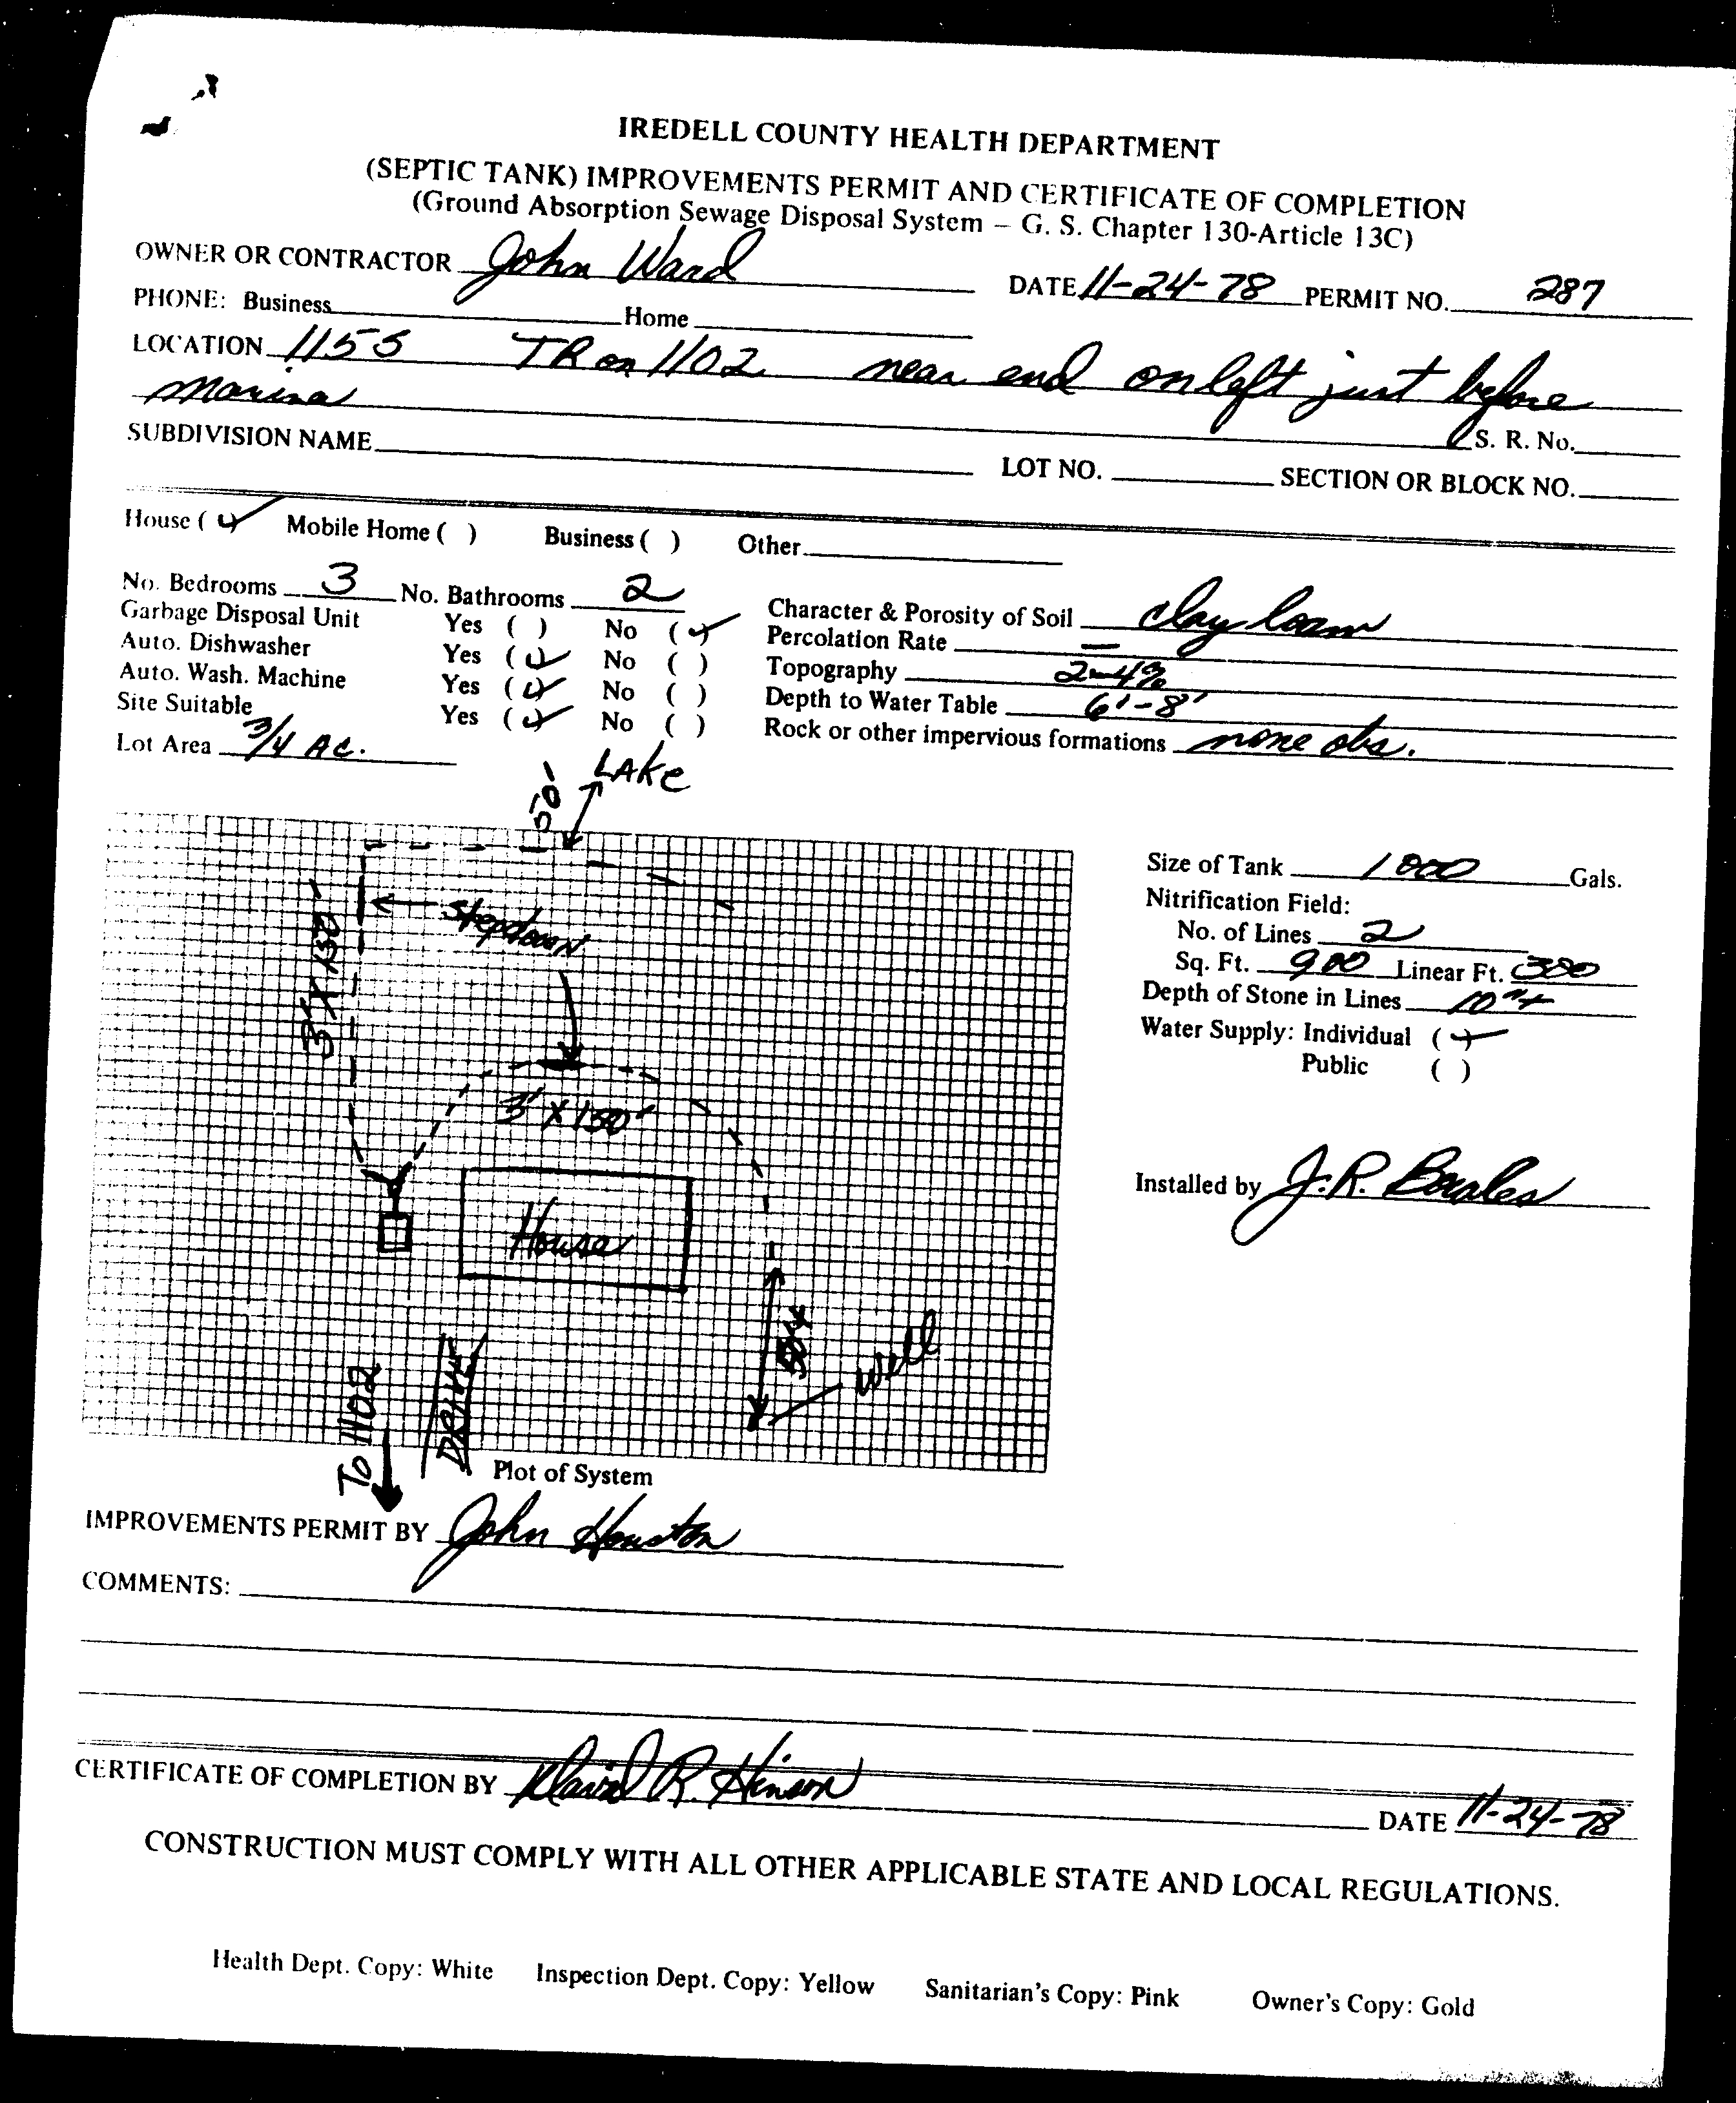 IREDELL COUNTY HEALTH DEPARTMENT
(SEPTIC TANK) IMPROVEMENTS PERMIT AND CERTIFICATE OF COMPLETION
(Ground Absorption Sewage Disposal System — G. S. Chapter 130-Article 13C)
OWNER OR CONTRACTOR John Ward DATE 11-24-78 PERMIT NO. 287
PHONE: Business Home
LOCATION 1155 TR on 1102 near end on left just before
marina S. R. No.
SUBDIVISION NAME LOT NO. SECTION OR BLOCK NO.
House (✓) Mobile Home ( ) Business ( ) Other
No. Bedrooms 3 No. Bathrooms 2 Character & Porosity of Soil clay loam
Garbage Disposal Unit Yes ( ) No (✓) Percolation Rate —
Auto. Dishwasher Yes (✓) No ( ) Topography 2-4%
Auto. Wash. Machine Yes (✓) No ( ) Depth to Water Table 6'-8'
Site Suitable Yes (✓) No ( ) Rock or other impervious formations none obs.
Lot Area 3/4 Ac.
50' LAKE
Stepdown
3' X 150'
3' X 150'
House
50'+
Well
To 1102
DRIVE
Plot of System
Size of Tank 1000 Gals.
Nitrification Field:
No. of Lines 2
Sq. Ft. 900 Linear Ft. 300
Depth of Stone in Lines 10"+
Water Supply: Individual (✓)
Public ( )
Installed by J.R.
IMPROVEMENTS PERMIT BY John Houston
COMMENTS:
CERTIFICATE OF COMPLETION BY David R. Hinson
DATE 11-24-78
CONSTRUCTION MUST COMPLY WITH ALL OTHER APPLICABLE STATE AND LOCAL REGULATIONS.
Health Dept. Copy: White Inspection Dept. Copy: Yellow Sanitarian's Copy: Pink Owner's Copy: Gold